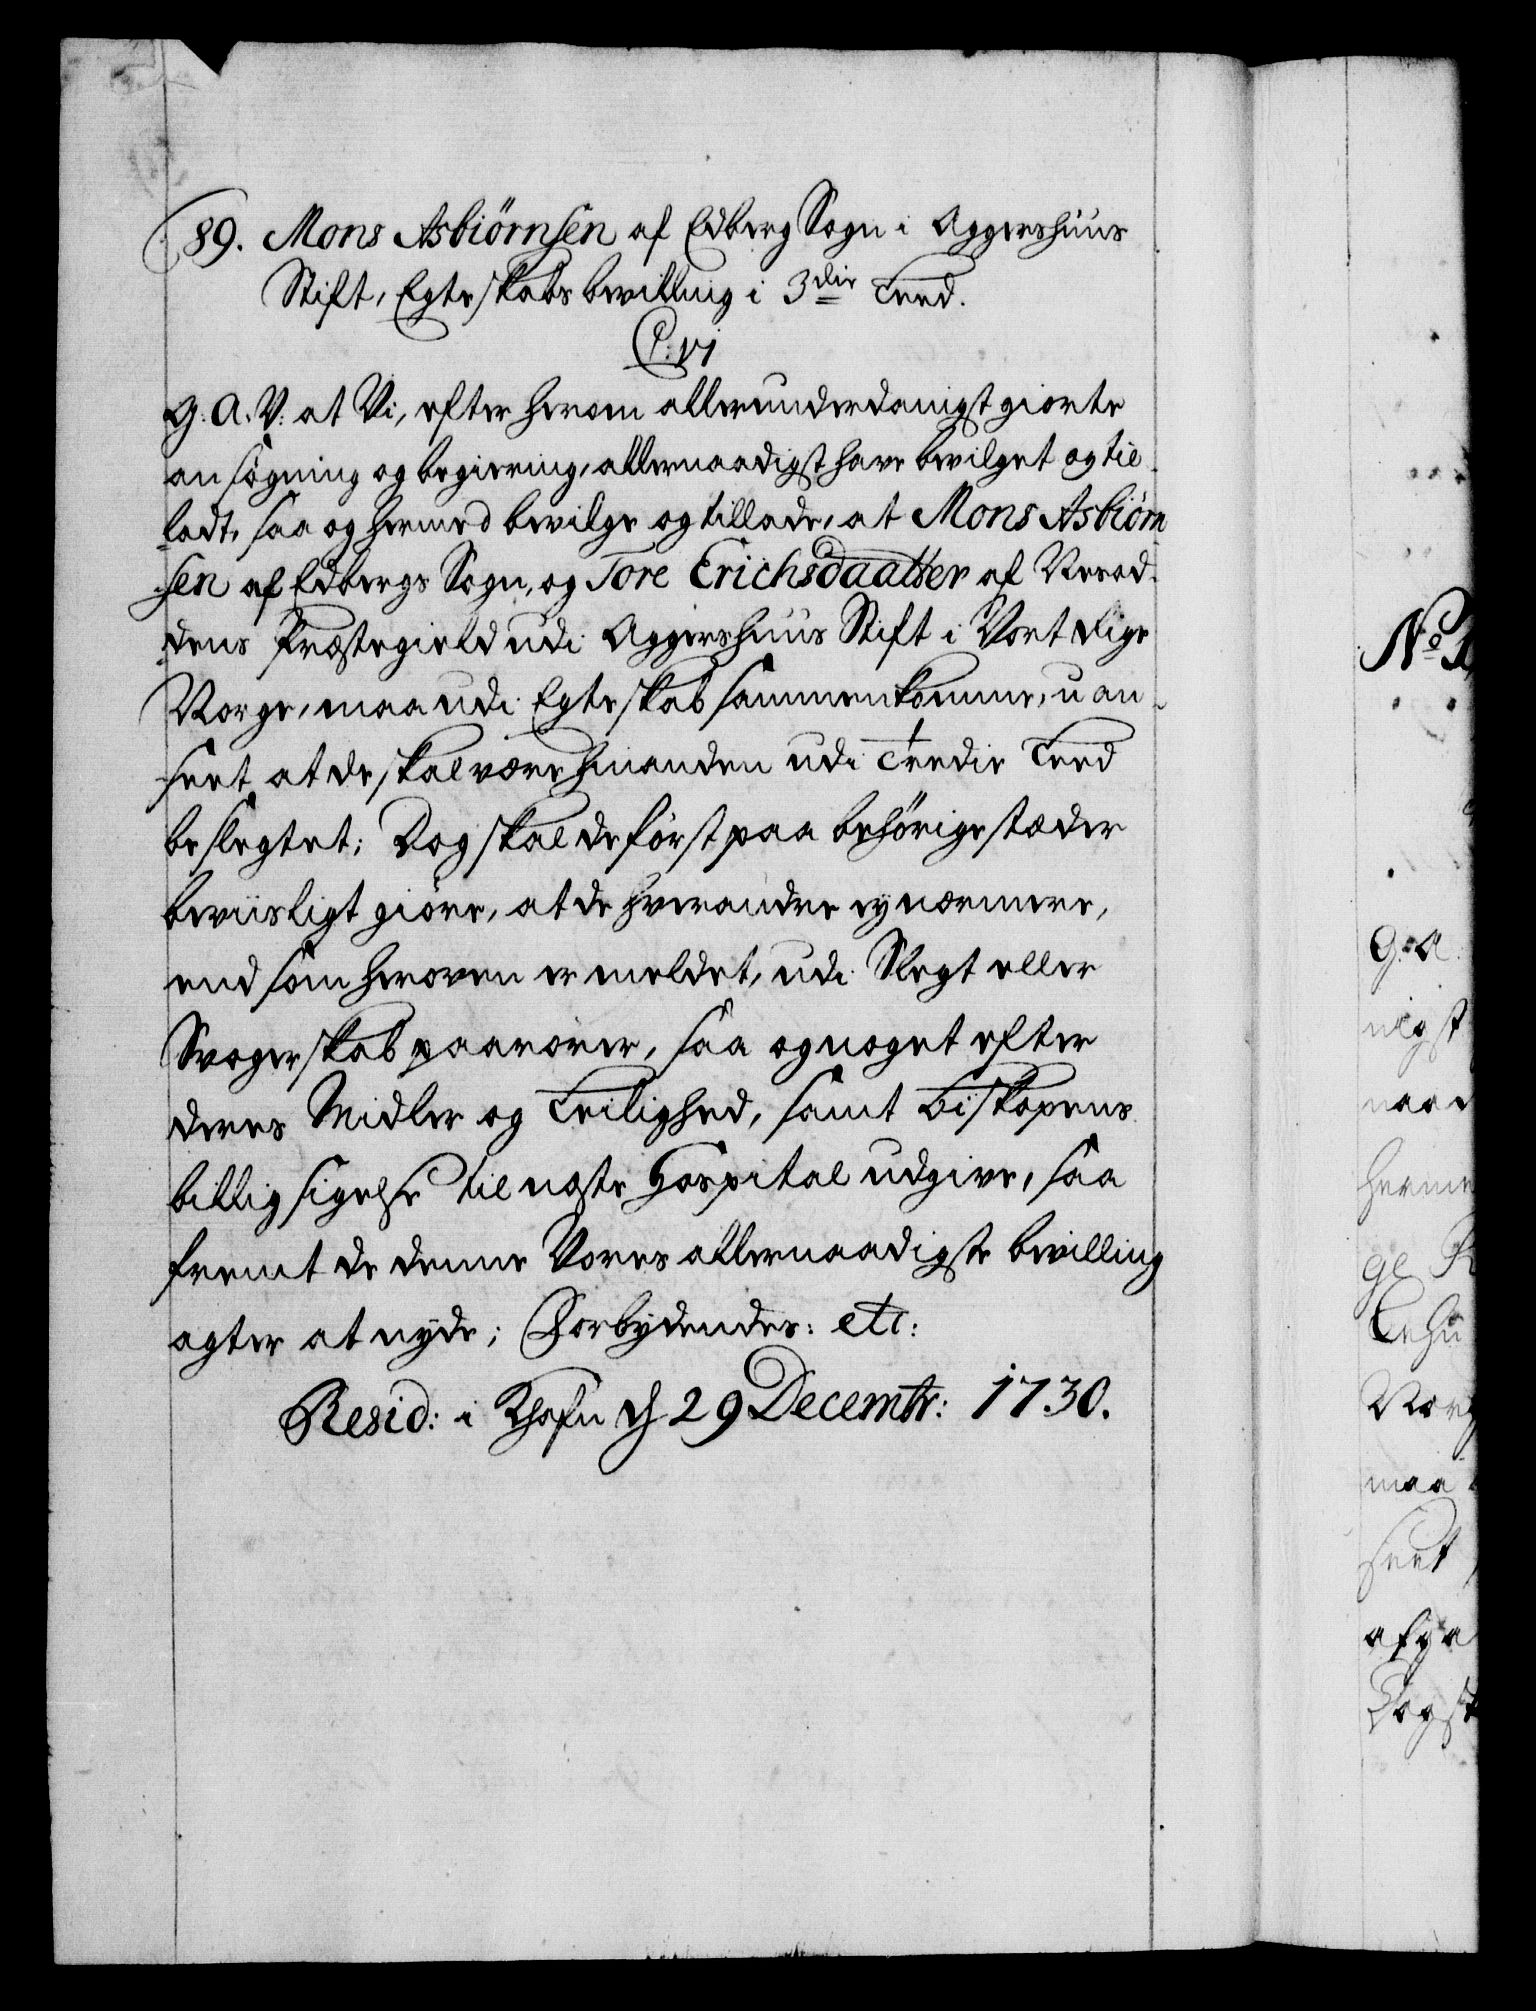 89. Mons Asbiørnsen af Edberg Sogn i Aggershuus
Stift, Egteskabs bevilling i 3die Leed.
C: VI
G. A. V. at Vi, efter herom allerunderdanigst giorte
ansøgning og begiering, allernaadigst have bevilget og til-
ladt, saa og hermed bevilge og tillade, at Mons Asbiørn
sen af Edbergs Sogn, og Tore Erichsdaatter af Neesod-
dens Præstegield udi Aggershuus Stift i Vort Rige
Norge, maa udi Egteskab sammenkomme, uan-
seet at de skal være hinanden udi Tredie Leed
beslegtet; Dog skal de først paa behørige stæder
beviisligt giøre, at de hverandre ey nærmere,
end som heroven er meldet, udi Slegt eller
Svogerskab paarører, saa og noget efter
deres Midler og Leilighed, samt Biskopens
billig sigelse til næste Hospital udgive, saa
fremt de denne Vores allernaadigste bevilling
agter at nyde; Forbydendes: etc:
Resid: i Khafn d 29 Decembr: 1730.
No 1
G. A.
nigst
naad
herme
ge R
Lehu
Norg
maa
seet
afga
Dog sk